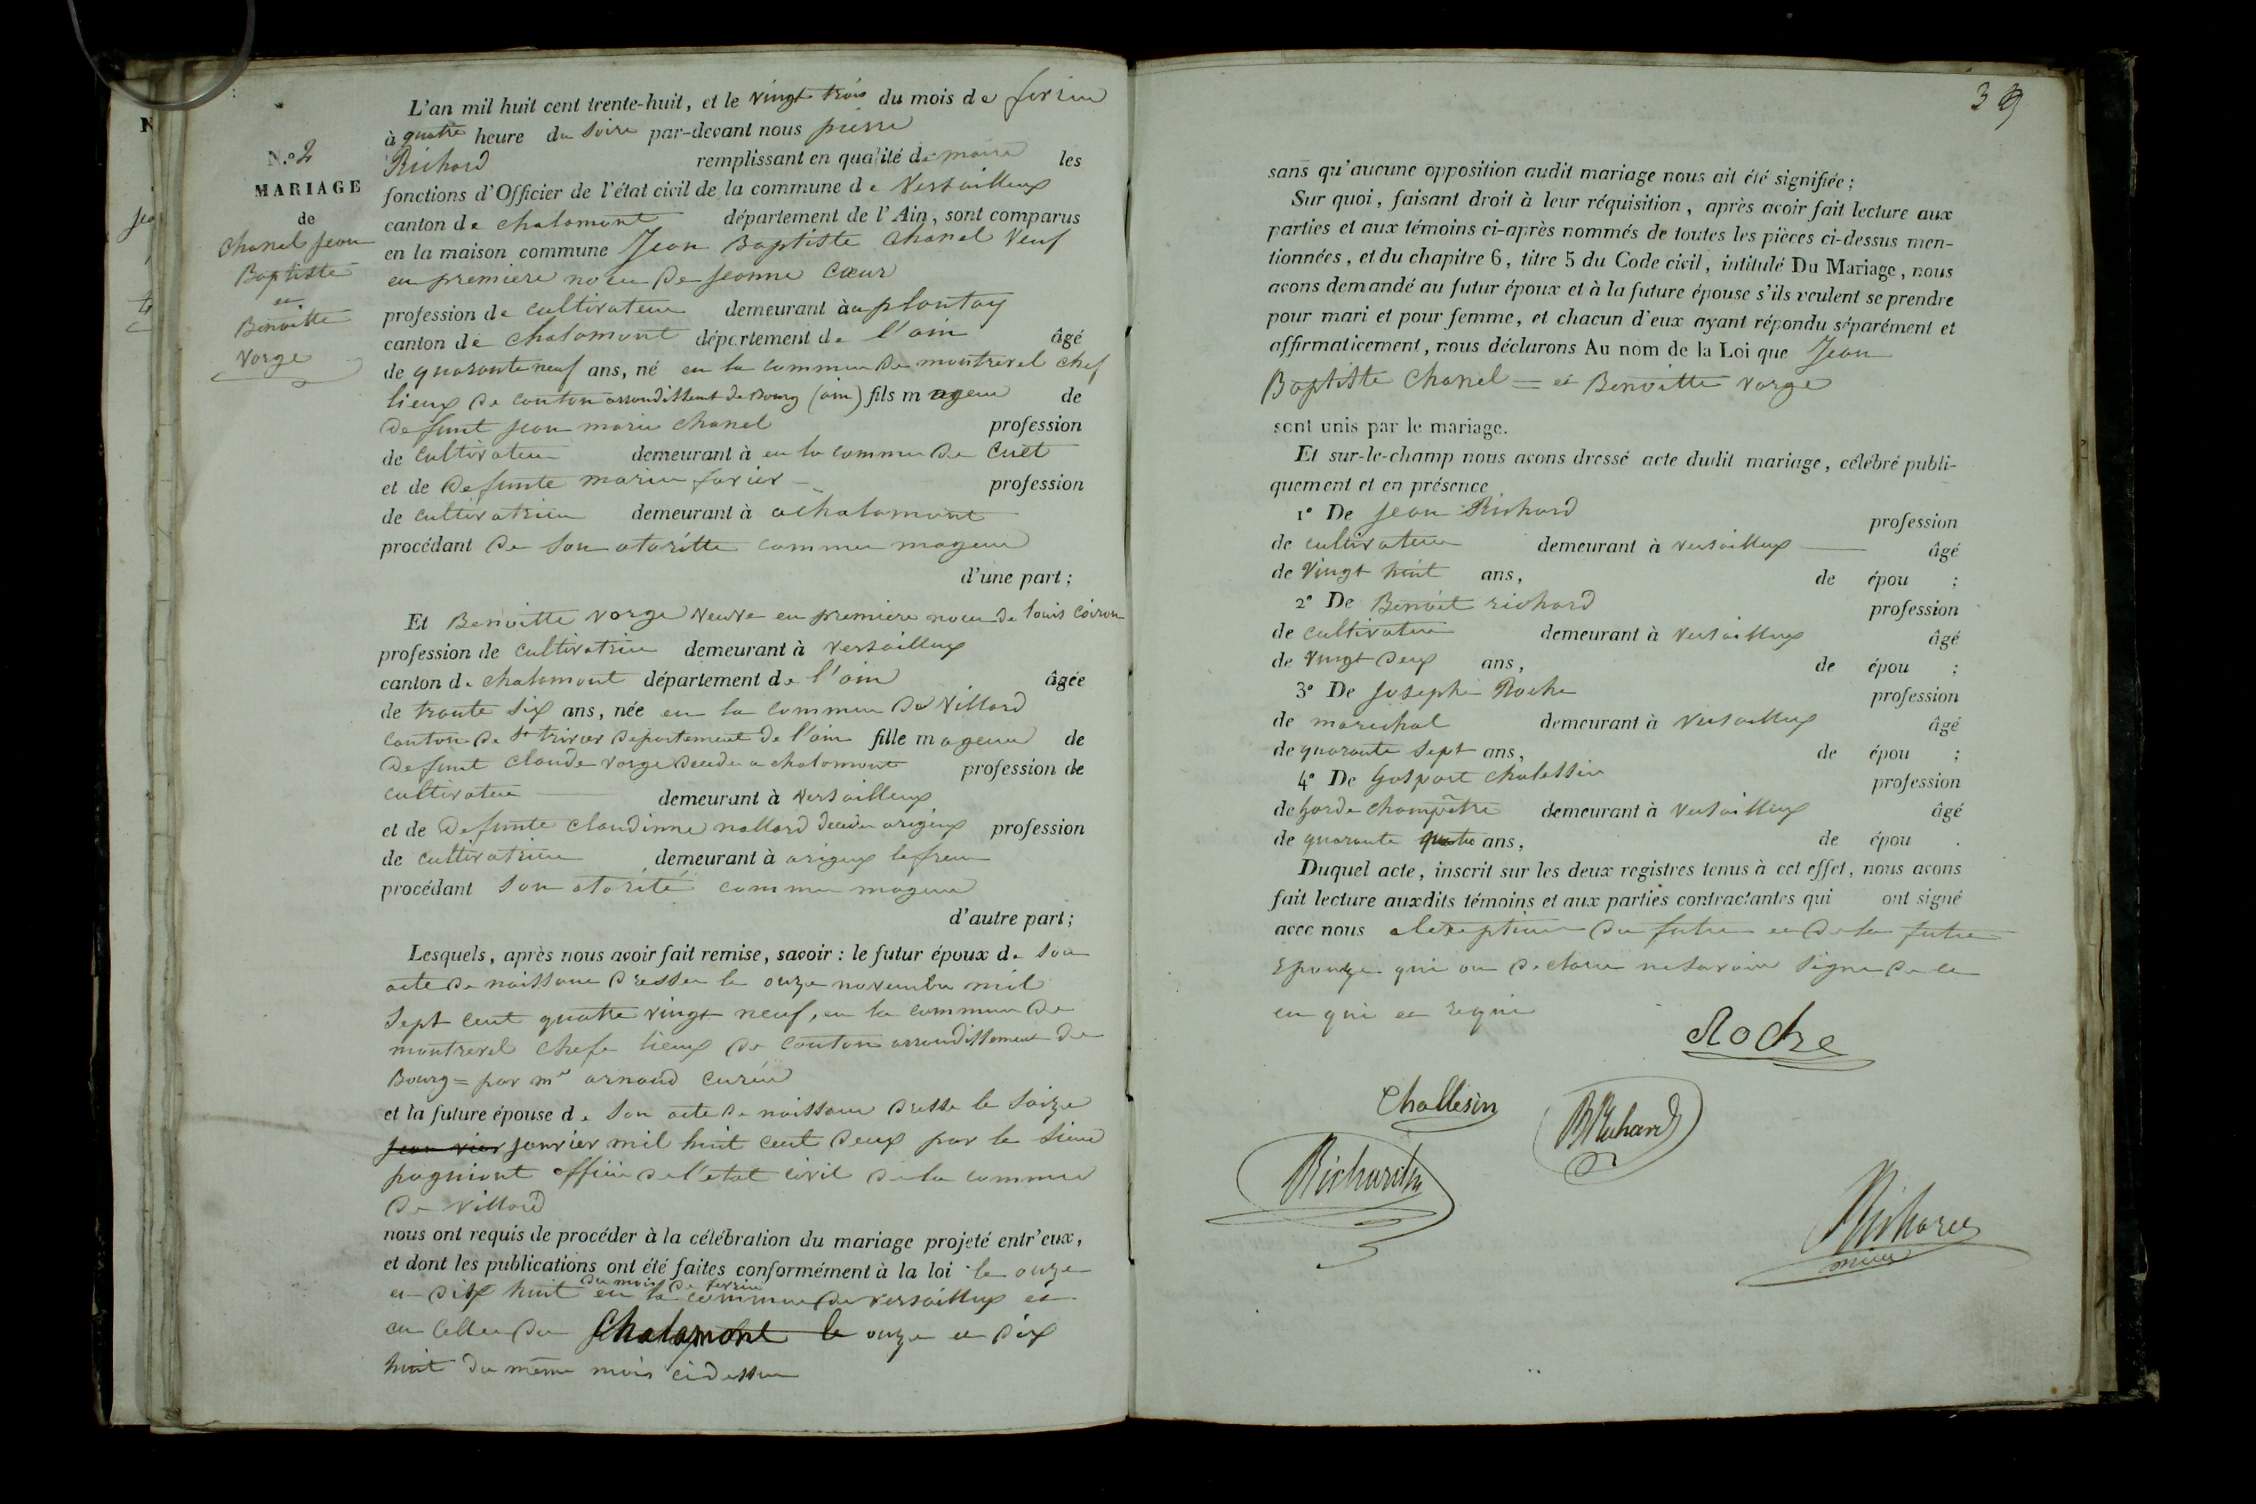 L'an mil huit cent trente-huit, et le vingt trois du mois de fevrier
à quatre heure du soire par-devant nous pierre
Richard remplissant en qualité de maire les
fonctions d'Officier de l'état civil de la commune de Versailleux
canton de chalamont département de l'Ain, sont comparus
en la maison commune Jean Baptiste Chanel Veuf
en premiere noce de jeanne Cœur
profession de cultivateur demeurant à au plantay
canton de chalamont département de l'ain âgé
de quarante neuf ans, né en la commune de montrevel chef
lieux de canton arrondissent de Bourg (ain) fils mageur de
defunt jean marie chanel profession
de cultivateur demeurant à en la commune de Cuet
et de defunte marie favier profession
de cultivatrice demeurant à achalamont
procédant de son atoritte comme mageur
d'une part;
N.º 2
MARIAGE
de
Chanel jean
Baptiste
et
Benoitte
Vorge
Et Benoitte vorge veuve en premiere noce de louis Coiron
profession de cultivatrice demeurant à versailleux
canton de chalamont département de l'ain âgée
de trante six ans, née en la commune de Villard
canton de St trivier departement de l'ain fille mageure de
defunt claude vorge decede a chalamont profession de
cultivateur demeurant à versailleux
et de defunte claudinne nallard decedee arigneux profession
de cultivatrice demeurant à arigneux lefren
procédant son atorité comme mageure
d'autre part;
Lesquels, après nous avoir fait remise, savoir: le futur époux de son
acte de naissance dresser le onze novembre mil
Sept cent quatre vingt neuf, en la commune de
montrevel chefe lieux de canton arrondissement de
Bourg = par mr arnaud Curée
et la future épouse de son acte de naissance dresse le saize
jean vier janvier mil huit cent deux par le sieur
pagniout officie de l'etat civil de la commune
de Villard
nous ont requis de procéder à la célébration du mariage projeté entr'eux,
et dont les publications ont été faites conformément à la loi le onze
du mois de fevrier
et dix huit en la commune de versailleux et
en celle de Chalamont le onze et dix
huit du même mois cidessu
39
sans qu'aucune opposition audit mariage nous ait été signifiée;
Sur quoi, faisant droit à leur réquisition, après avoir fait lecture aux
parties et aux témoins ci-après nommés de toutes les pièces ci-dessus men-
tionnées, et du chapitre 6, titre 5 du Code civil, intitulé Du Mariage, nous
avons demandé au futur époux et à la future épouse s'ils veulent se prendre
pour mari et pour femme, et chacun d'eux ayant répondu séparément et
affirmativement, nous déclarons Au nom de la Loi que Jean
Baptiste Chanel = et Benoitte vorge
sont unis par le mariage.
Et sur-le-champ nous avons dressé acte dudit mariage, célébré publi-
quement et en présence
1º De Jean Richard profession
de cultivateur demeurant à versailleux âgé
de Vingt huit ans, de épou ;
2º De Benoit richard profession
de cultivateur demeurant à versailleux âgé
de vingt deux ans, de épou ;
3º De Josephe Roche profession
de marechal demeurant à versailleux âgé
de quarante sept ans, de épou ;
4º De Gaspart chalessin profession
de Garde champêtre demeurant à versailleux âgé
de quarante quatre ans, de épou .
Duquel acte, inscrit sur les deux registres tenus à cet effet, nous avons
fait lecture auxdits témoins et aux parties contractantes qui ont signé
avec nous alexeption du futur et de la future
Epouze qui on declare ne savoir signe de ce
en qui et requi
Roche
Challesin
BRichard
Richard
Richard
maire